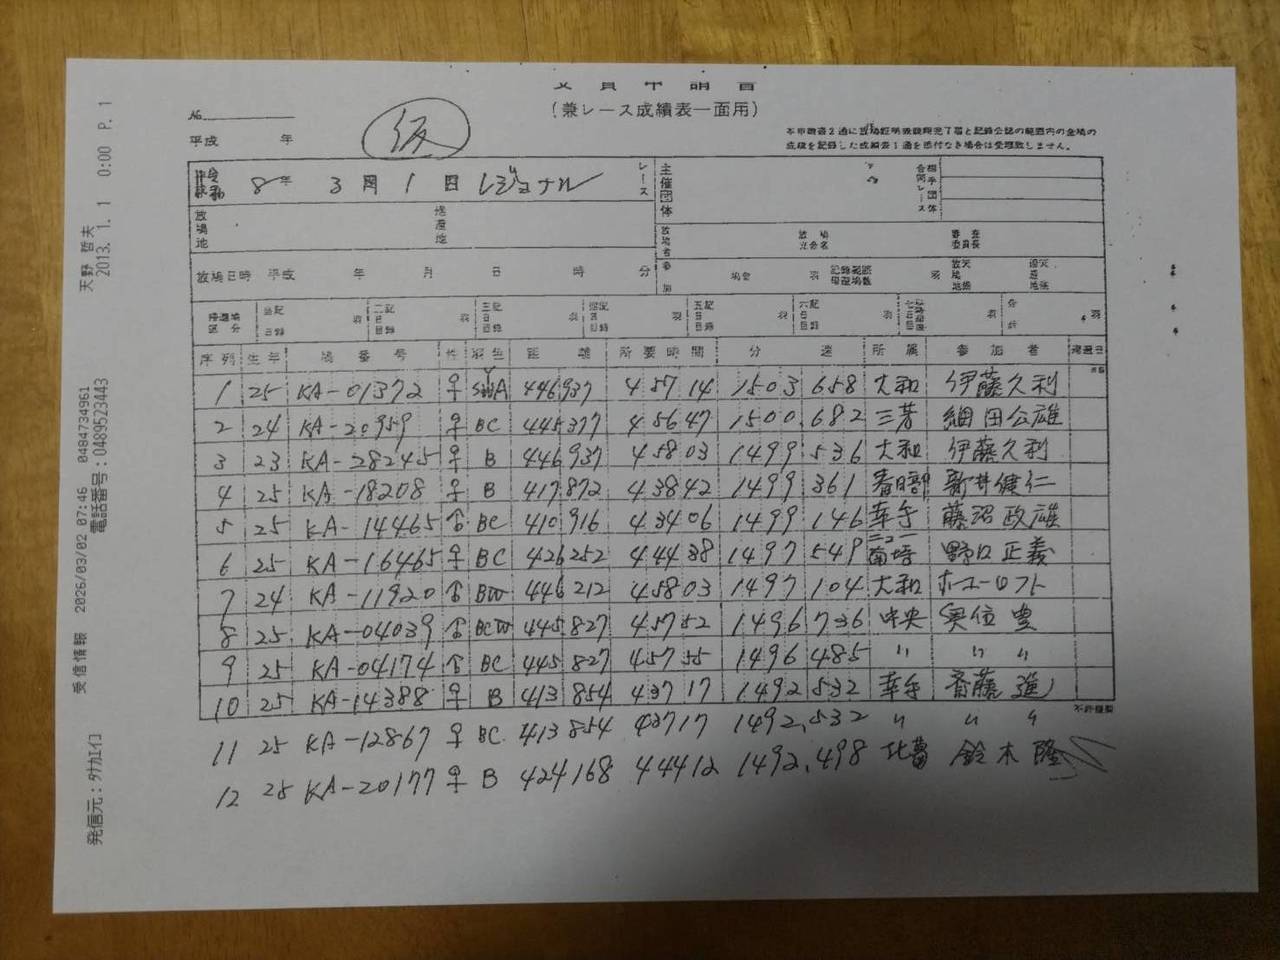 (兼レース成績表一面用)
No.
平成 年
仮
本申請書2通に放鳩証明表競翔完了届と記録公認の範囲内の全鳩の
成績を記録した成績表1通を添付なき場合は受理致しません。
8年 3月1日 レジョナル レース
主催団体
合同レース 相手団体
放鳩地
放鳩者
審査委員長
放鳩日時 平成 年 月 日 時 分
参加 鳩舎 羽 羽
序列 生年 鳩番号 性 羽色 距離 所要時間 分速 所属 参加者
1 25 KA-01372 ♀ 446937 45714 1503 658 大和 伊藤久利
2 24 KA-20959 ♀ BC 445377 45647 1500.682 三芳 細田公雄
3 23 KA-28245 ♀ B 446937 45803 1499 536 大和 伊藤久利
4 25 KA-18208 ♀ B 417872 43842 1499 361 春日部 新井健仁
5 25 KA-14465 ♂ BC 410916 43406 1499 146 幸手 藤沼政雄
6 25 KA-16465 ♀ BC 426252 44438 1497 549 ニュー南埼 野口正義
7 24 KA-11920 ♂ BW 446212 45803 1497 104 大和 ホユーロフト
8 25 KA-04039 ♂ BCW 445827 45752 1496 736 中央 実位豊
9 25 KA-04174 ♂ BC 445827 45755 1496 485 〃 〃 〃
10 25 KA-14388 ♀ B 413854 43717 1492 532 幸手 斉藤進
不許複製
11 25 KA-12867 ♀ BC 413854 43717 1492.532 〃 〃 〃
12 25 KA-20177 ♀ B 424168 44412 1492.498 北葛 鈴木隆
発信元:ﾀｹﾅｶｴｲｺ 受信情報 2026/03/02 07:46 0484734961 天野 哲夫
電話番号:0489523443 2013. 1. 1 0:00 P. 1